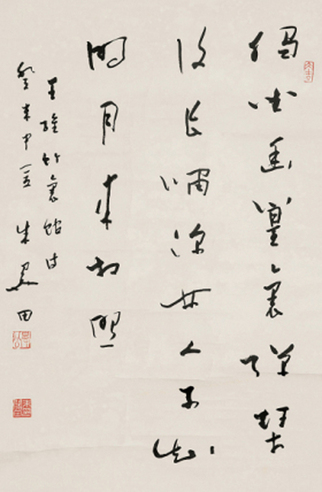 獨坐幽篁裏彈琴
復長嘯深林人不知
明月來相照
王維竹裏館詩
癸未中夏 朱關田